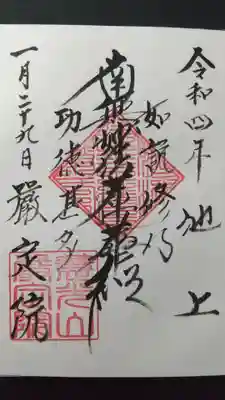 令和四年 池上
如説修行
南無妙法蓮華経
功徳甚多
一月二十九日 厳定院